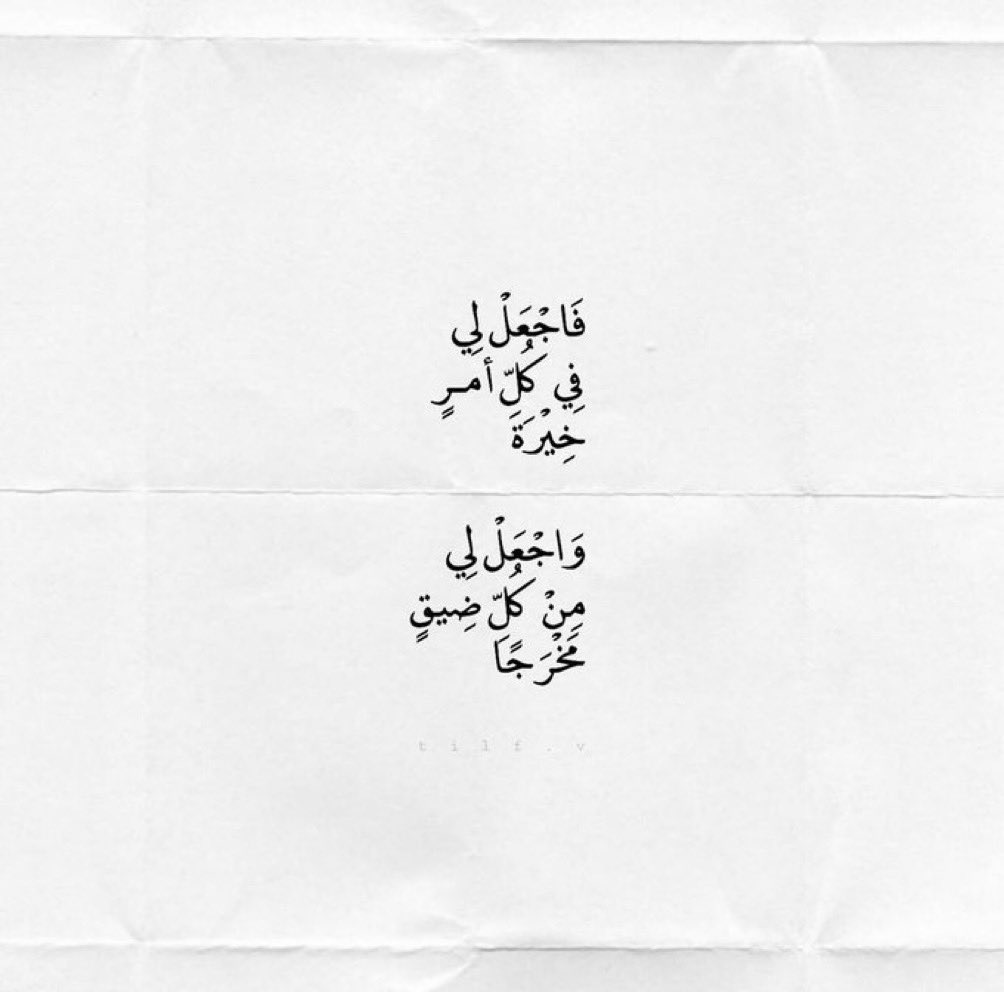 فَاجْعَلْ لِي
فِي كُلِّ أمـرٍ
خِيْرَةَ
وَاجْعَلْ لِي
مِنْ كُلِّ ضِيقٍ
مَخْرَجًا
tilf.v